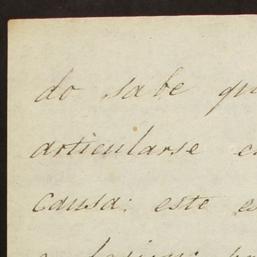 do sabe qu
articularse e
causa: este e